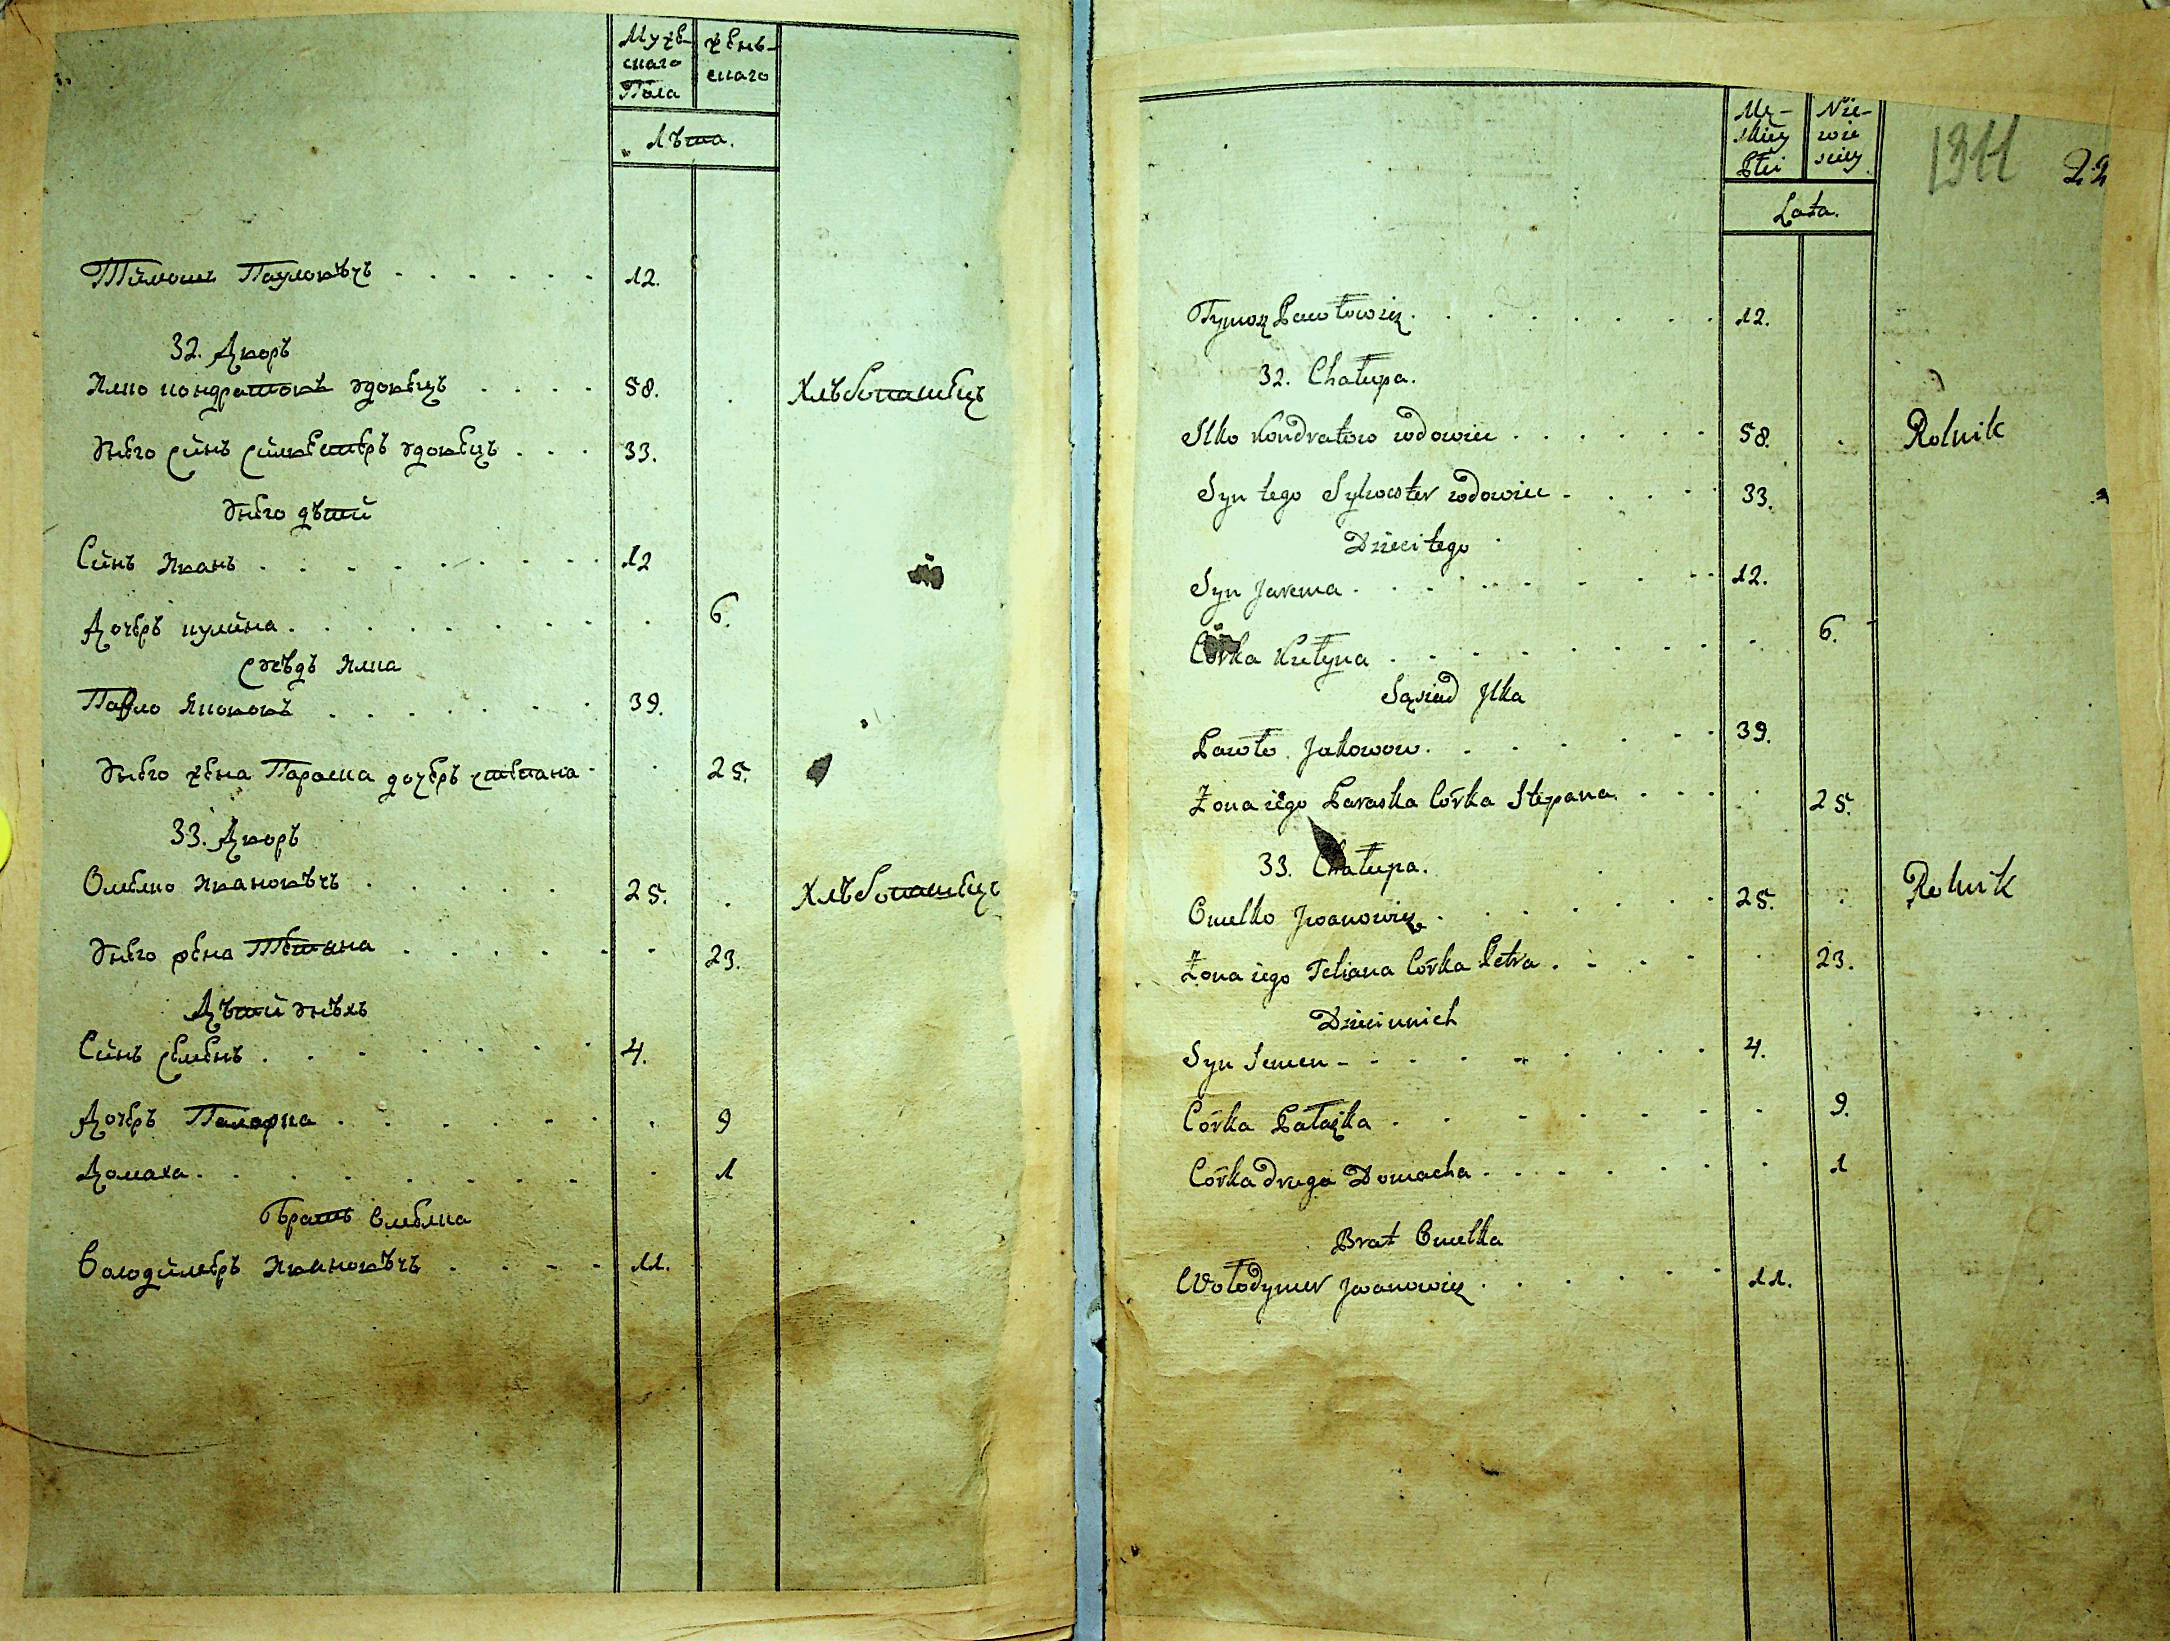 Муже- жень-
скаго скаго
Пола
Лѣта.
Тимошъ Паулов҃ѣчъ 12.
32. Дворъ
Илко кондратовъ удовецъ 58. Хлѣбопашецъ
Унего синъ силвестеръ удовецъ 33.
Унего дѣти
Синъ Иванъ 12
Дочеръ кулина 6.
сусѣдъ Илка
Павло Якововъ 39.
Унего жена Параска дочеръ степана 25.
33. Дворъ
Омелко Ивановѣчъ 25. Хлѣбопашецъ
Унего жена Тетiана 23.
Дѣти унѣхъ
Синъ семенъ 4.
Дочеръ Палажка 9
Домаха 1
Братъ Омелка
Володимеръ Ивановѣчъ 11.
Mę- Nie-
skiey wie
Płci sciey
1311 22
Lata.
Tymosz Pawłowicz 12.
32. Chałupa.
Ilko Kondratow wdowiec 58. Rolnik
Syn tego Sylwester wdowiec 33.
Dzieci tego
Syn Jarema 12.
Córka Kulyna 6.
Sąsiad Ilka
Pawło Jakowow 39.
Żona iego Paraska Córka Stepana 25.
33. Chałupa.
Omelko Jwanowicz 25. Rolnik
Żona iego Tetiana Córka Petra 23.
Dzieci unich
Syn Semen 4.
Córka Pałażka 9.
Córka druga Domacha 1
Brat Omelka
Wołodymer Jwanowicz 11.